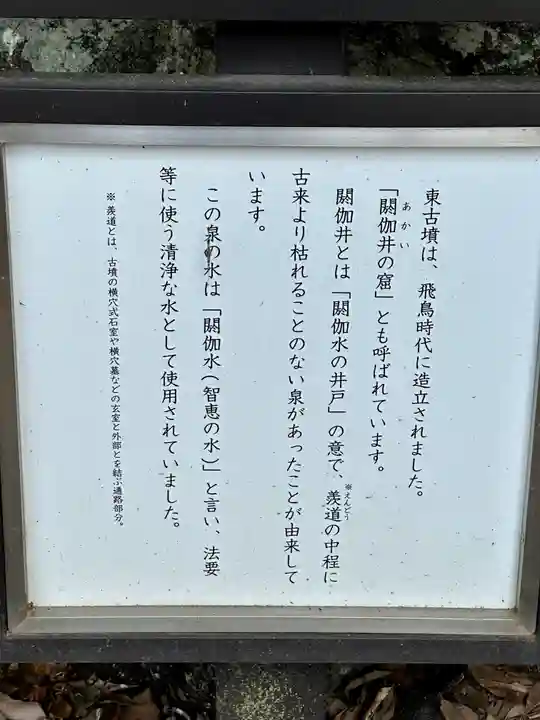 東古墳は、飛鳥時代に造立されました。
「閼伽井の窟」とも呼ばれています。
あかい
閼伽井とは「閼伽水の井戸」の意で、※羨道の中程に
えんどう
古来より枯れることのない泉があったことが由来して
います。
この泉の水は「閼伽水(智恵の水)」と言い、法要
等に使う清浄な水として使用されていました。
※ 羨道とは、古墳の横穴式石室や横穴墓などの玄室と外部とを結ぶ通路部分。